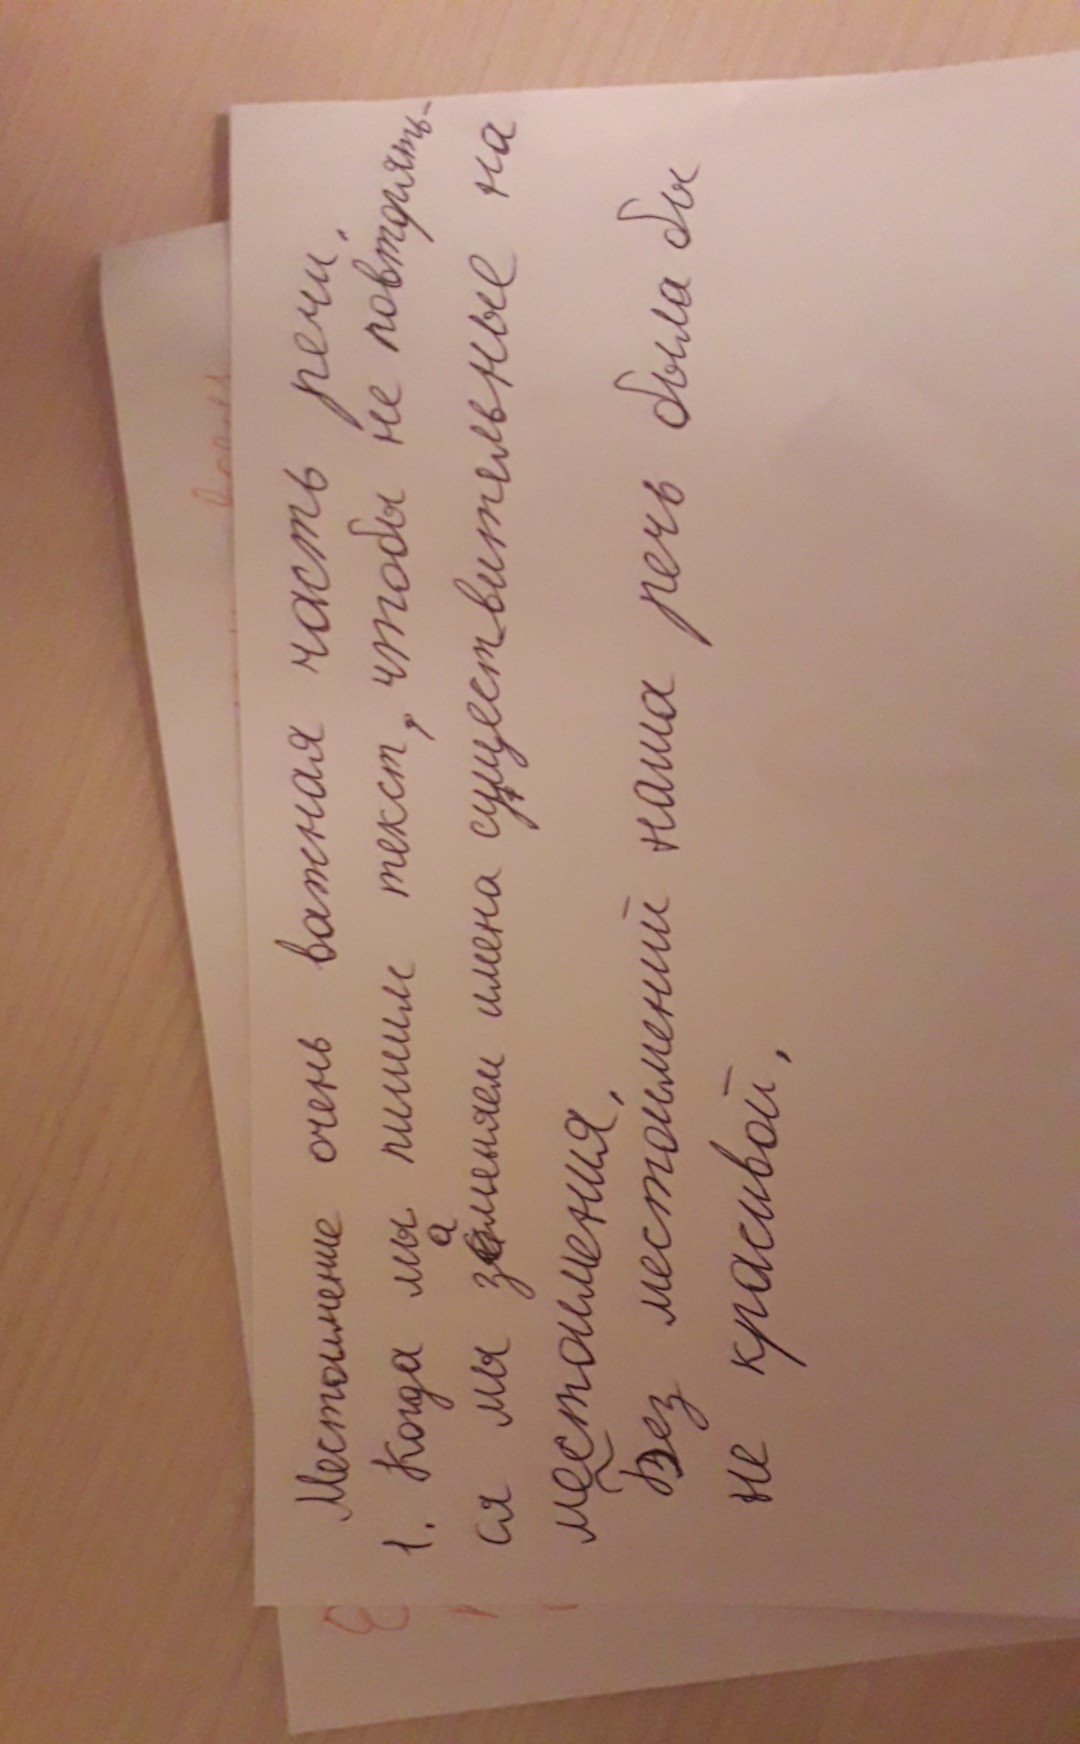 Местоимение очень важная часть речи.
1. Когда мы пишим текст, чтобы не повторять-
ся мы заменяем имена существительные на
местоимения.
Без местоимений наша речь была бы
не красивой.